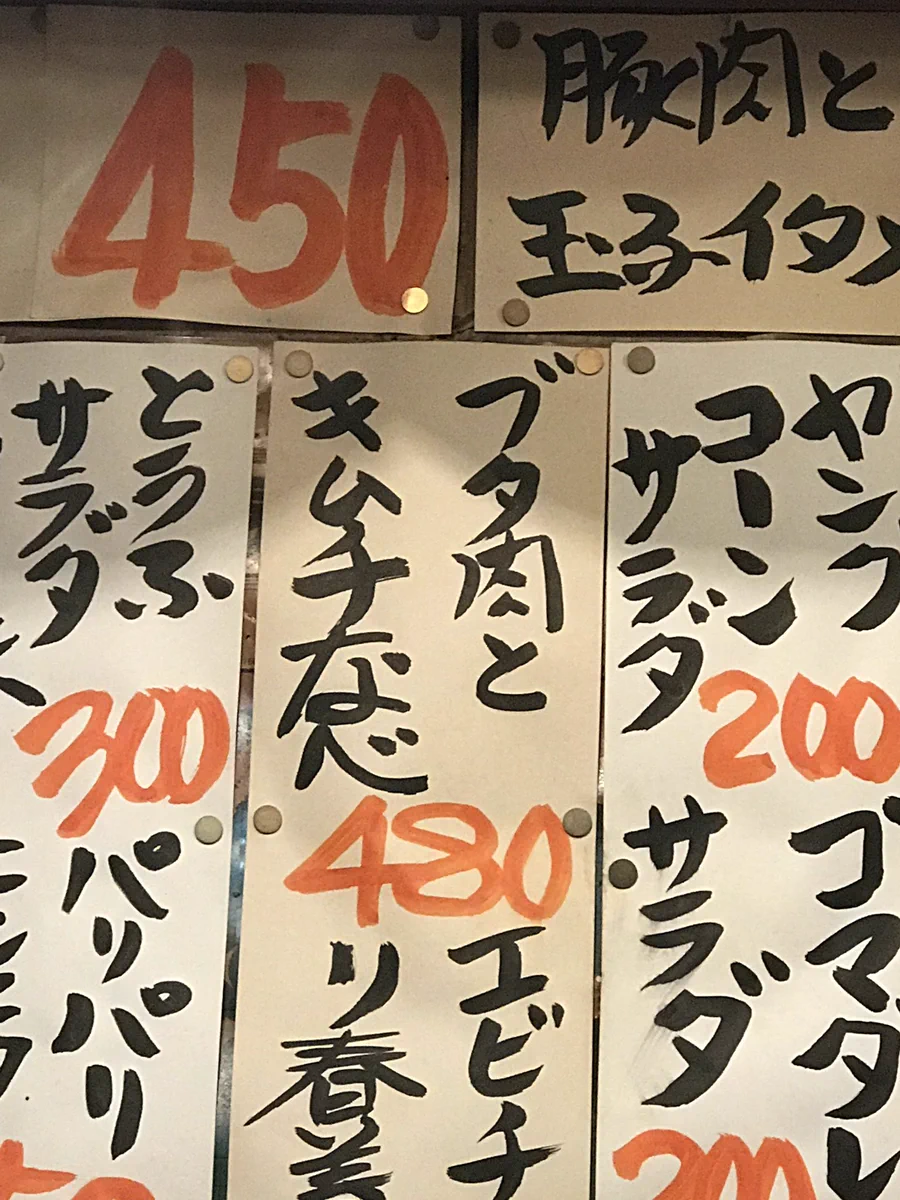 450
豚肉と
玉子イタ
ヤング
コーン
サラダ
200
ゴマダレ
サラダ
200
ブタ肉と
キムチ炒め
480
エビチ
リ春巻
とうふ
サラダ
300
パリパリ